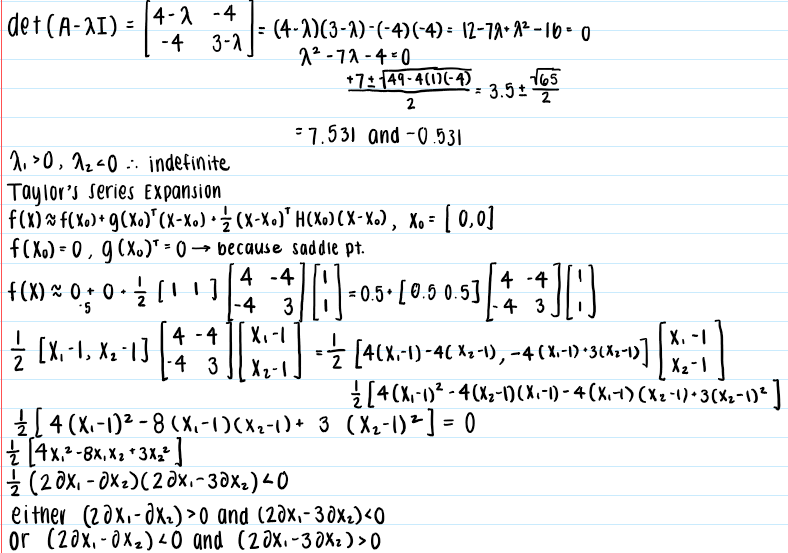 det(A-λI) = [4-λ -4
-4 3-λ] = (4-λ)(3-λ)-(-4)(-4) = 12-7λ+λ²-16 = 0
λ²-7λ-4=0
(+7±√(49-4(1)(-4)))/2 = 3.5±√65/2
= 7.531 and -0.531
λ₁>0, λ₂<0 ∴ indefinite
Taylor's Series Expansion
f(X)≈f(X₀)+g(X₀)ᵀ(X-X₀)+½(X-X₀)ᵀH(X₀)(X-X₀), X₀=[0,0]
f(X₀)=0, g(X₀)ᵀ=0→because saddle pt.
f(X)≈0+0+½[1 1][4 -4
-4 3][1
1]=0.5+[0.5 0.5][4 -4
-4 3][1
1]
.5
½[X₁-1, X₂-1][4 -4
-4 3][X₁-1
X₂-1]=½[4(X₁-1)-4(X₂-1), -4(X₁-1)+3(X₂-1)][X₁-1
X₂-1]
½[4(X₁-1)²-4(X₂-1)(X₁-1)-4(X₁-1)(X₂-1)+3(X₂-1)²]
½[4(X₁-1)²-8(X₁-1)(X₂-1)+ 3 (X₂-1)²]=0
½[4X₁²-8X₁X₂+3X₂²]
½(2∂X₁-∂X₂)(2∂X₁-3∂X₂)<0
either (2∂X₁-∂X₂)>0 and (2∂X₁-3∂X₂)<0
or (2∂X₁-∂X₂)<0 and (2∂X₁-3∂X₂)>0